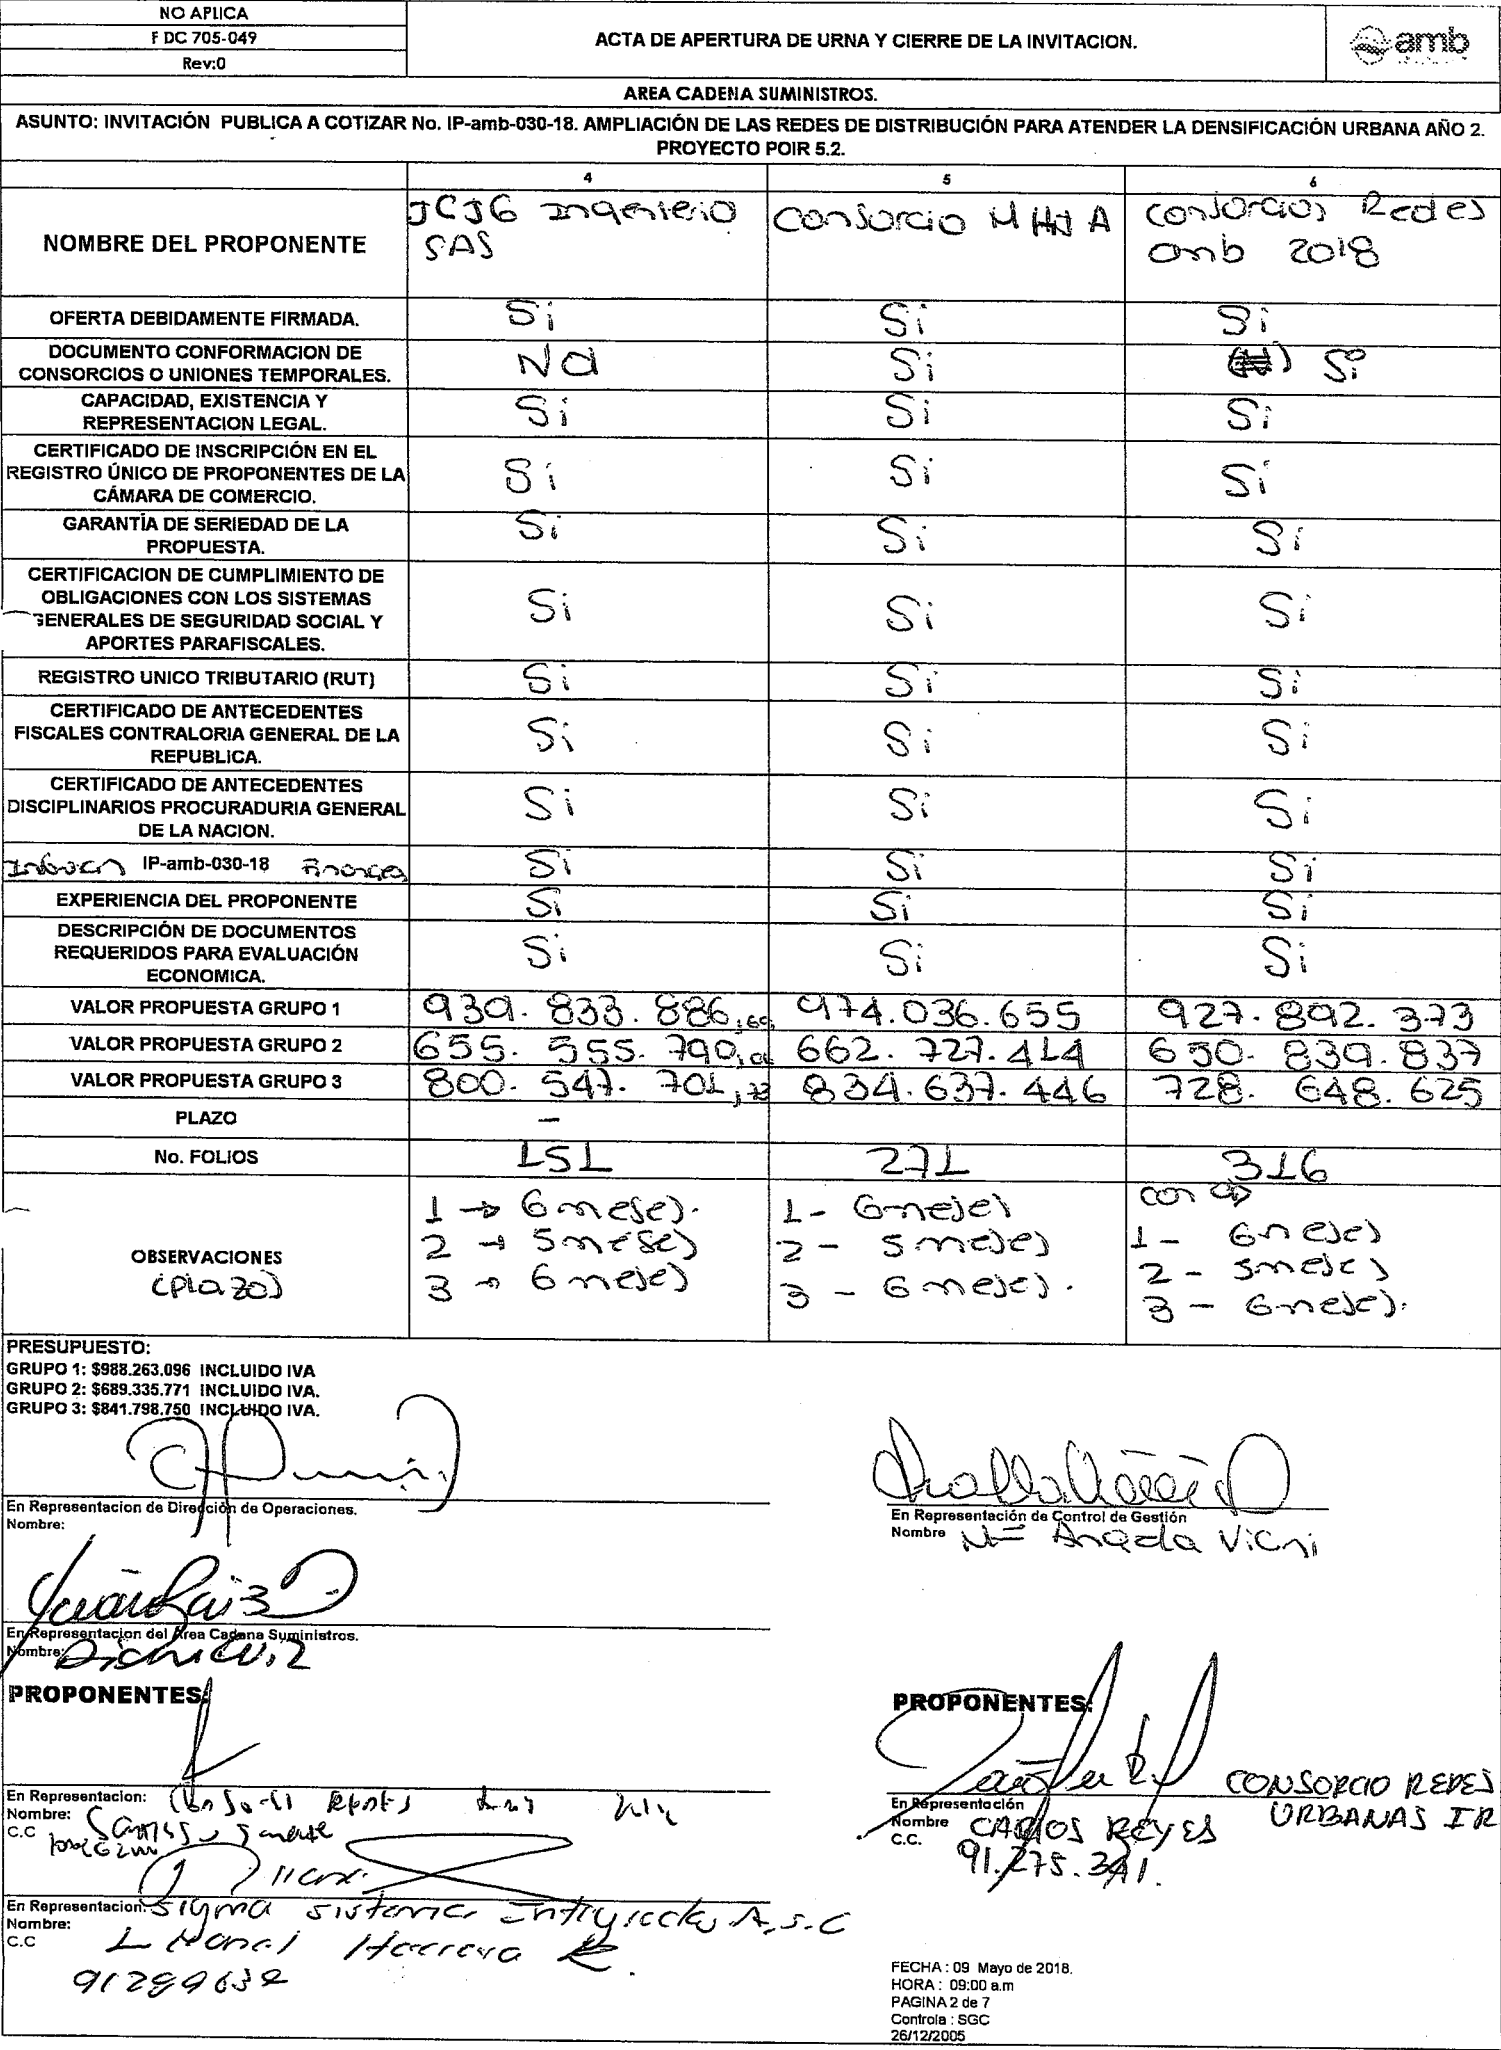 NO APLICA
F DC 705-049
Rev:0
ACTA DE APERTURA DE URNA Y CIERRE DE LA INVITACION.
amb
AREA CADENA SUMINISTROS.
ASUNTO: INVITACIÓN PUBLICA A COTIZAR No. IP-amb-030-18. AMPLIACIÓN DE LAS REDES DE DISTRIBUCIÓN PARA ATENDER LA DENSIFICACIÓN URBANA AÑO 2.
PROYECTO POIR 5.2.
4 5 6
NOMBRE DEL PROPONENTE
JCJG Ingenieria
SAS
Consorcio MHJA
Consorcios Redes
amb 2018
OFERTA DEBIDAMENTE FIRMADA. Si Si Si
DOCUMENTO CONFORMACION DE
CONSORCIOS O UNIONES TEMPORALES.
Na Si Si
CAPACIDAD, EXISTENCIA Y
REPRESENTACION LEGAL.
Si Si Si
CERTIFICADO DE INSCRIPCIÓN EN EL
REGISTRO ÚNICO DE PROPONENTES DE LA
CÁMARA DE COMERCIO.
Si Si Si
GARANTÍA DE SERIEDAD DE LA
PROPUESTA.
Si Si Si
CERTIFICACION DE CUMPLIMIENTO DE
OBLIGACIONES CON LOS SISTEMAS
GENERALES DE SEGURIDAD SOCIAL Y
APORTES PARAFISCALES.
Si Si Si
REGISTRO UNICO TRIBUTARIO (RUT) Si Si Si
CERTIFICADO DE ANTECEDENTES
FISCALES CONTRALORIA GENERAL DE LA
REPUBLICA.
Si Si Si
CERTIFICADO DE ANTECEDENTES
DISCIPLINARIOS PROCURADURIA GENERAL
DE LA NACION.
Si Si Si
IP-amb-030-18 Si Si Si
EXPERIENCIA DEL PROPONENTE Si Si Si
DESCRIPCIÓN DE DOCUMENTOS
REQUERIDOS PARA EVALUACIÓN
ECONOMICA.
Si Si Si
VALOR PROPUESTA GRUPO 1 939.833.886, 974.036.655 927.892.373
VALOR PROPUESTA GRUPO 2 655.555.790, 662.727.414 650.839.837
VALOR PROPUESTA GRUPO 3 800.547.701, 834.637.446 728.648.625
PLAZO –
No. FOLIOS 151 271 316
OBSERVACIONES
(plazo)
1 → 6 meses.
2 → 5 meses
3 → 6 meses
1 - 6 meses
2 - 5 meses
3 - 6 meses.
con CD
1 - 6 meses
2 - 5 meses
3 - 6 meses.
PRESUPUESTO:
GRUPO 1: $988.263.096 INCLUIDO IVA
GRUPO 2: $689.335.771 INCLUIDO IVA.
GRUPO 3: $841.798.750 INCLUIDO IVA.
En Representacion de Dirección de Operaciones.
Nombre:
En Representación de Control de Gestión
Nombre
En Representacion del Area Cadena Suministros.
Nombre:
PROPONENTES:
En Representacion:
Nombre:
C.C
En Representacion: Sigma
Nombre: Herrera R.
C.C
PROPONENTES:
En Representación CONSORCIO REDES
URBANAS IR
Nombre CARLOS REYES
C.C. 91.275.341.
FECHA : 09 Mayo de 2018.
HORA : 09:00 a.m
PAGINA 2 de 7
Controla : SGC
26/12/2005